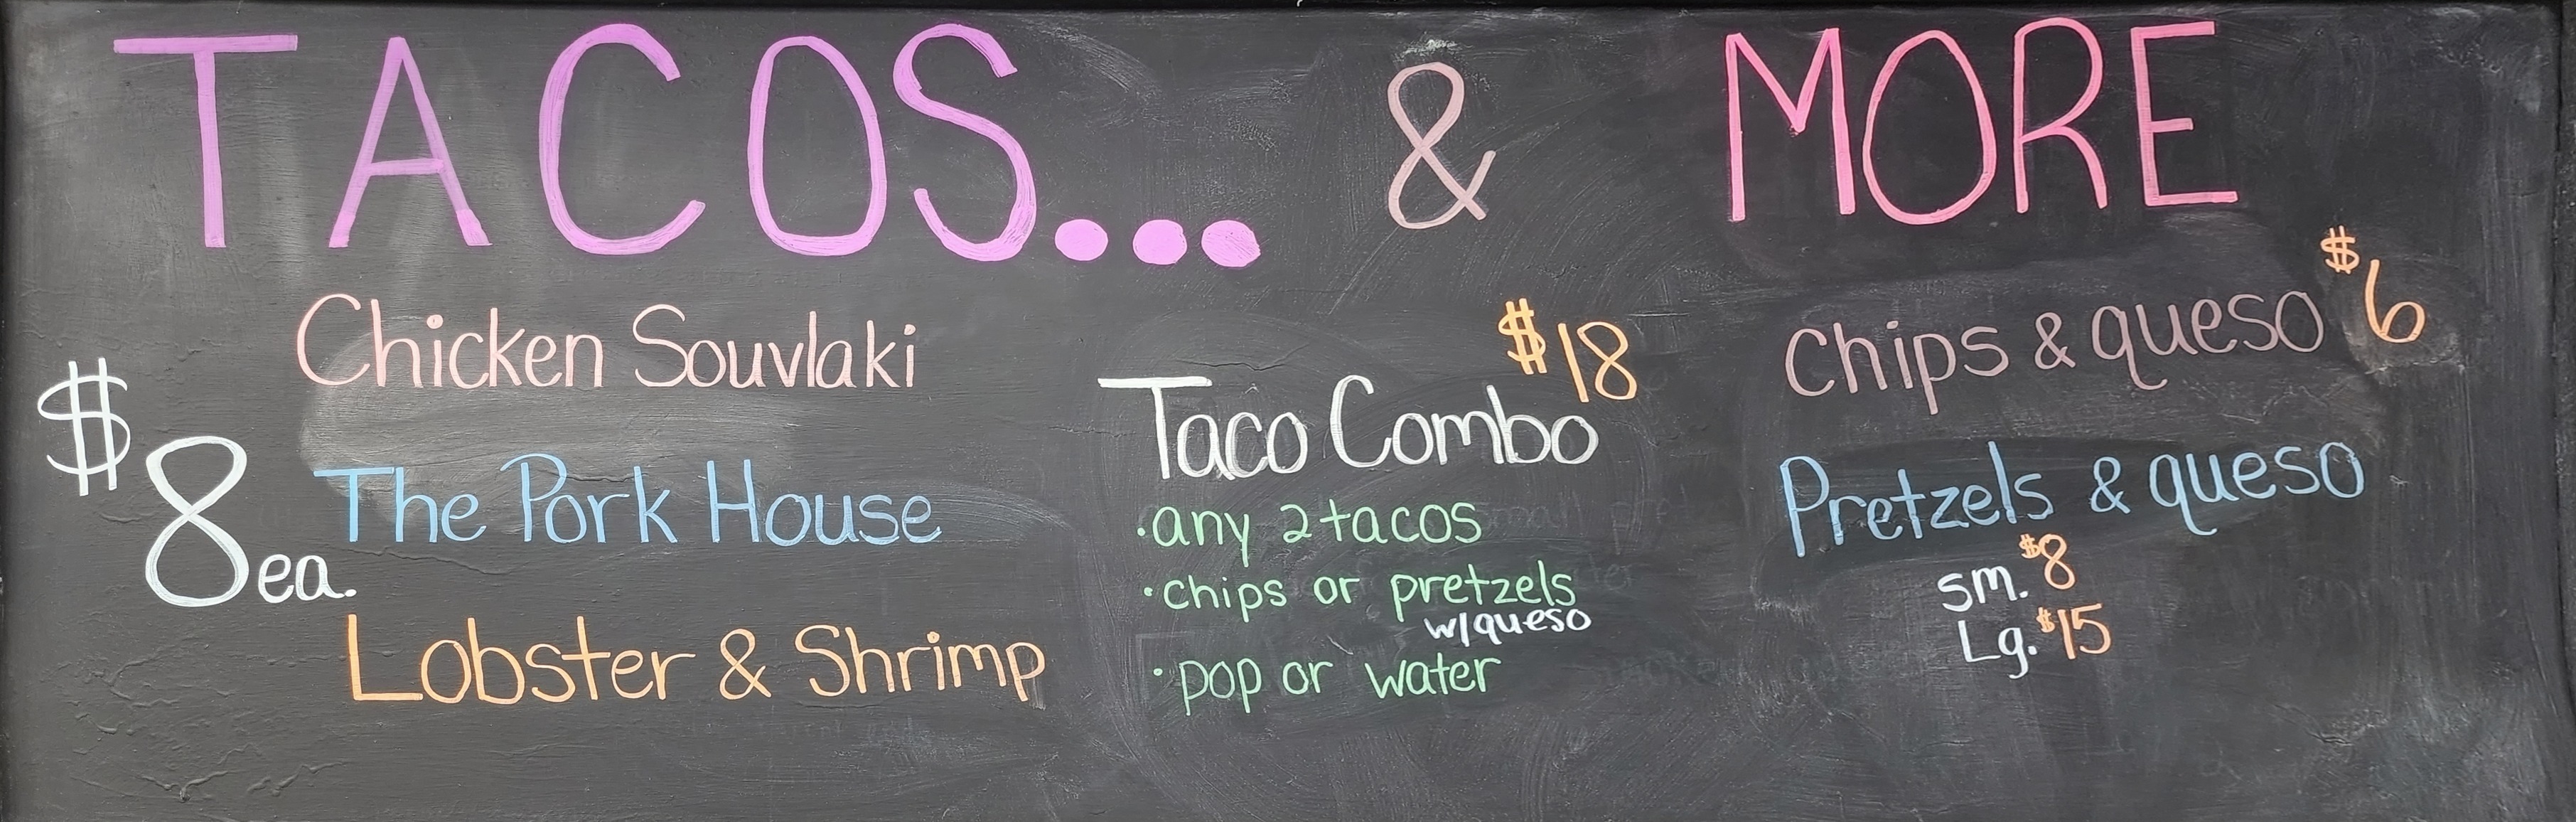 TACOS... & MORE
$8 ea.
Chicken Souvlaki
The Pork House
Lobster & Shrimp
$18
Taco Combo
·any 2 tacos
·chips or pretzels
w/queso
·pop or water
Chips & queso $6
Pretzels & queso
sm. $8
Lg. $15